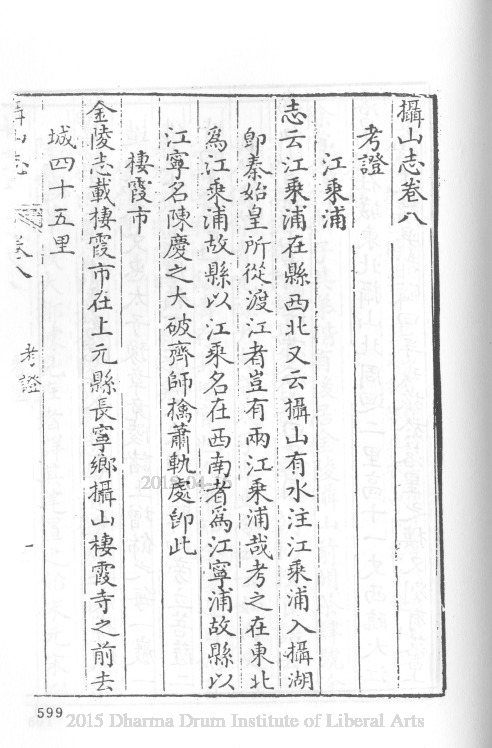 攝山志卷八
考證
江乘浦
志云江乘浦在縣西北又云攝山有水注江乘浦入攝湖
卽秦始皇所從渡江者豈有兩江乘浦哉考之在東北
爲江乘浦故縣以江乘名在西南者爲江寧浦故縣以
江寧名陳慶之大破齊師擒蕭軌處卽此
棲霞市
金陵志載棲霞市在上元縣長寧鄉攝山棲霞寺之前去
城四十五里
山志
卷八
考證
一
599
2015 Dharma Drum Institute of Liberal Arts